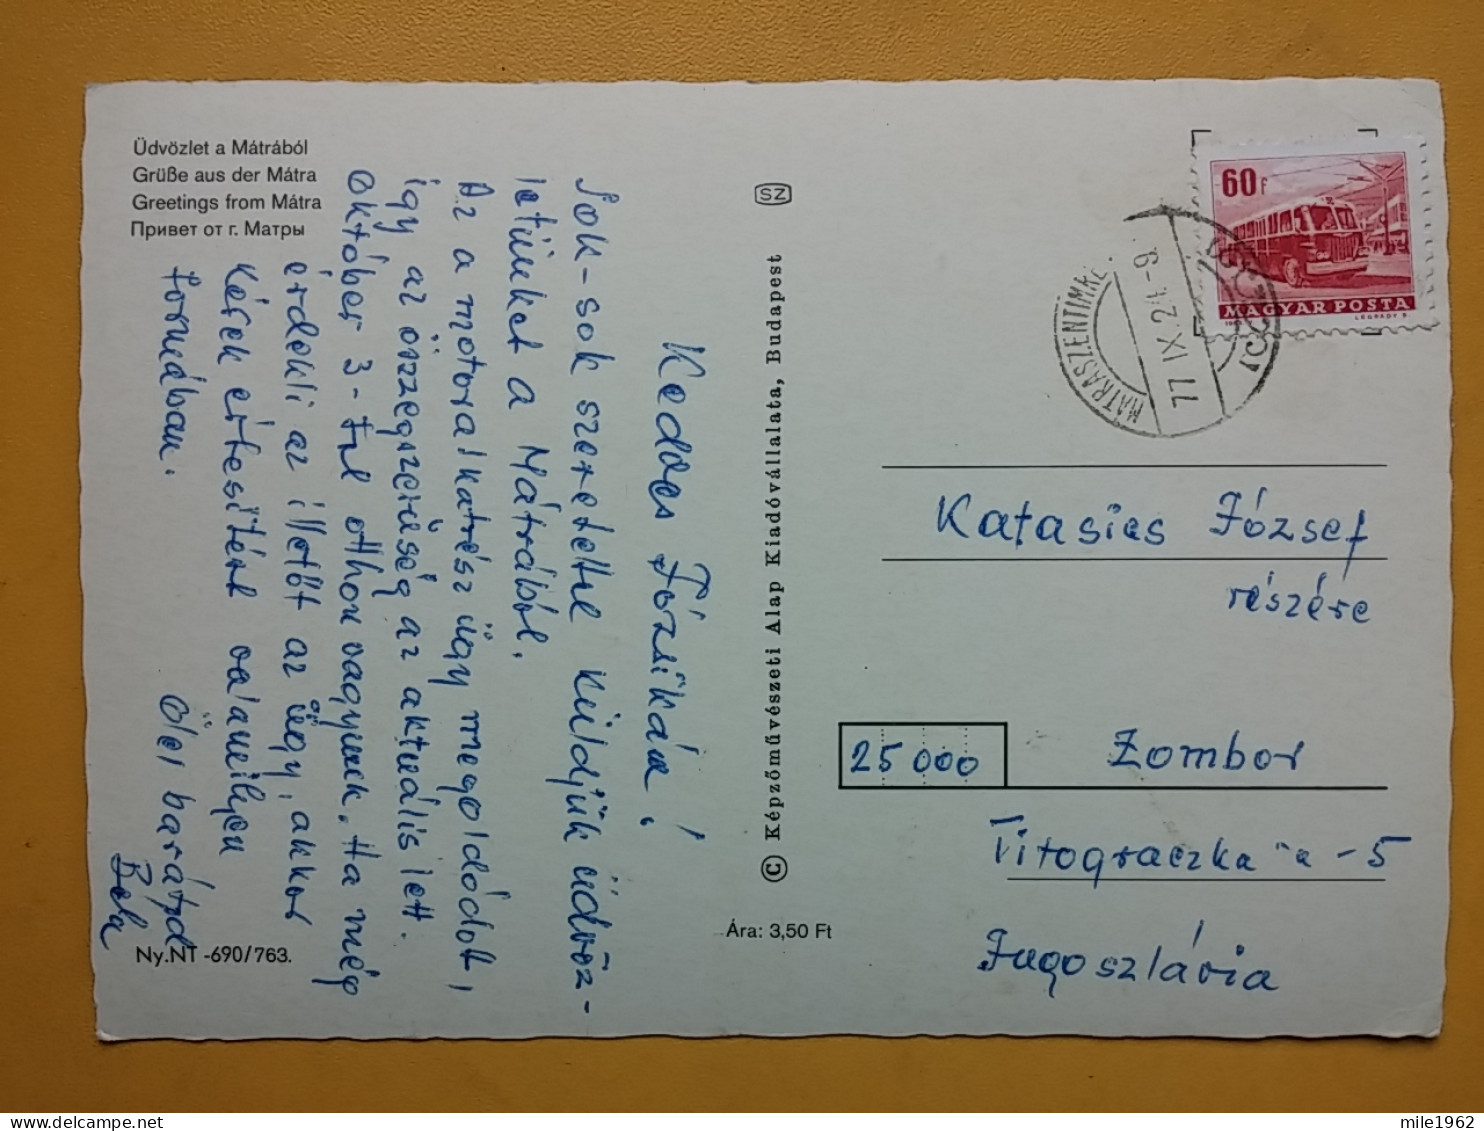 Üdvözlet a Mátrából
Grüße aus der Mátra
Greetings from Mátra
Привет от г. Матры
Kedves Józsikám!
Sok-sok szeretettel küldjük üdvöz-
letünket a Mátrából.
Az a motoralkatrész ügy megoldódott,
így az összegszerűség az aktuális lett.
Október 3-tul otthon vagyunk. Ha még
érdekli az illetőt az ügy, akkor
kérek értesitést valamilyen
formában.
Ölel barátod
Béla
Ny.NT -690/763.
SZ
© Képzőművészeti Alap Kiadóvállalata, Budapest
Ára: 3,50 Ft
60f
MAGYAR POSTA
LÉGRÁDY S.
MÁTRASZENTIMRE
77 IX.24.-9
Katasics József
részére
25000
Zombor
Titograczka u-5
Jugoszlávia
mile1962